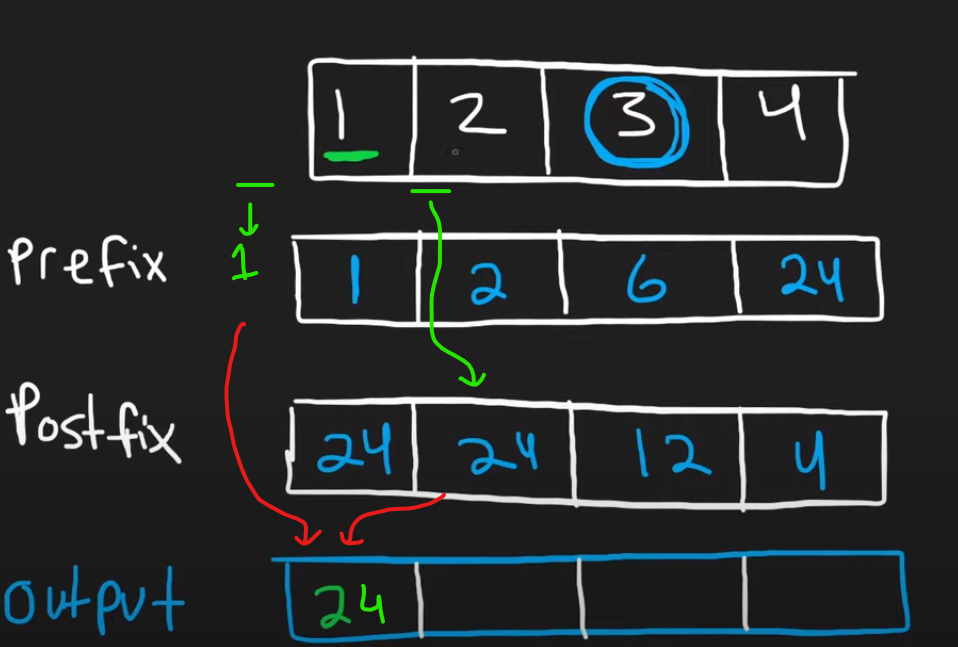 1 2 3 4
Prefix 1 1 2 6 24
Postfix 24 24 12 4
output 24